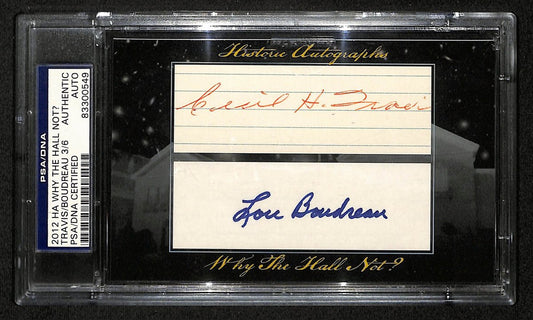 PSA/DNA
2012 HA WHY THE HALL NOT?
TRAVIS/BOUDREAU 3/6
PSA/DNA CERTIFIED
AUTO
AUTHENTIC
83300549
Historic Autographs
Cecil H. Travis
Lou Boudreau
Why The Hall Not?